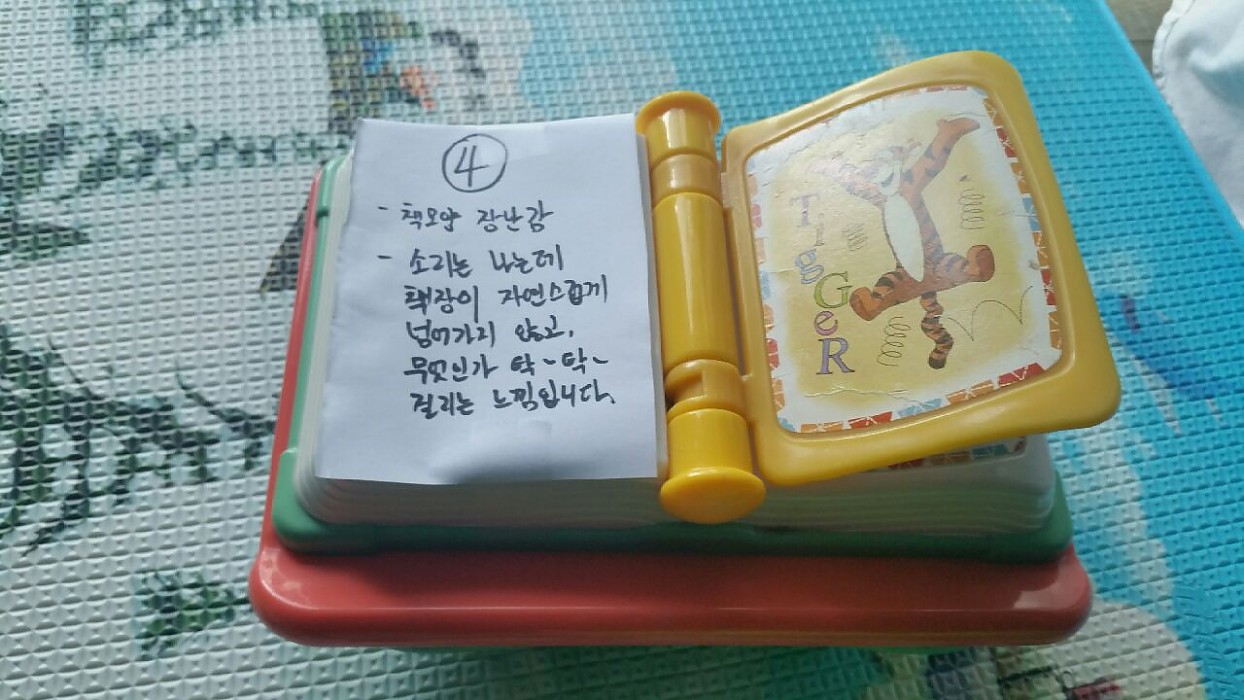 ④
- 책모양 장난감
- 소리는 나는데
책장이 자연스럽게
넘어가지 않고,
무엇인가 탁~탁~
걸리는 느낌입니다.
TigGeR